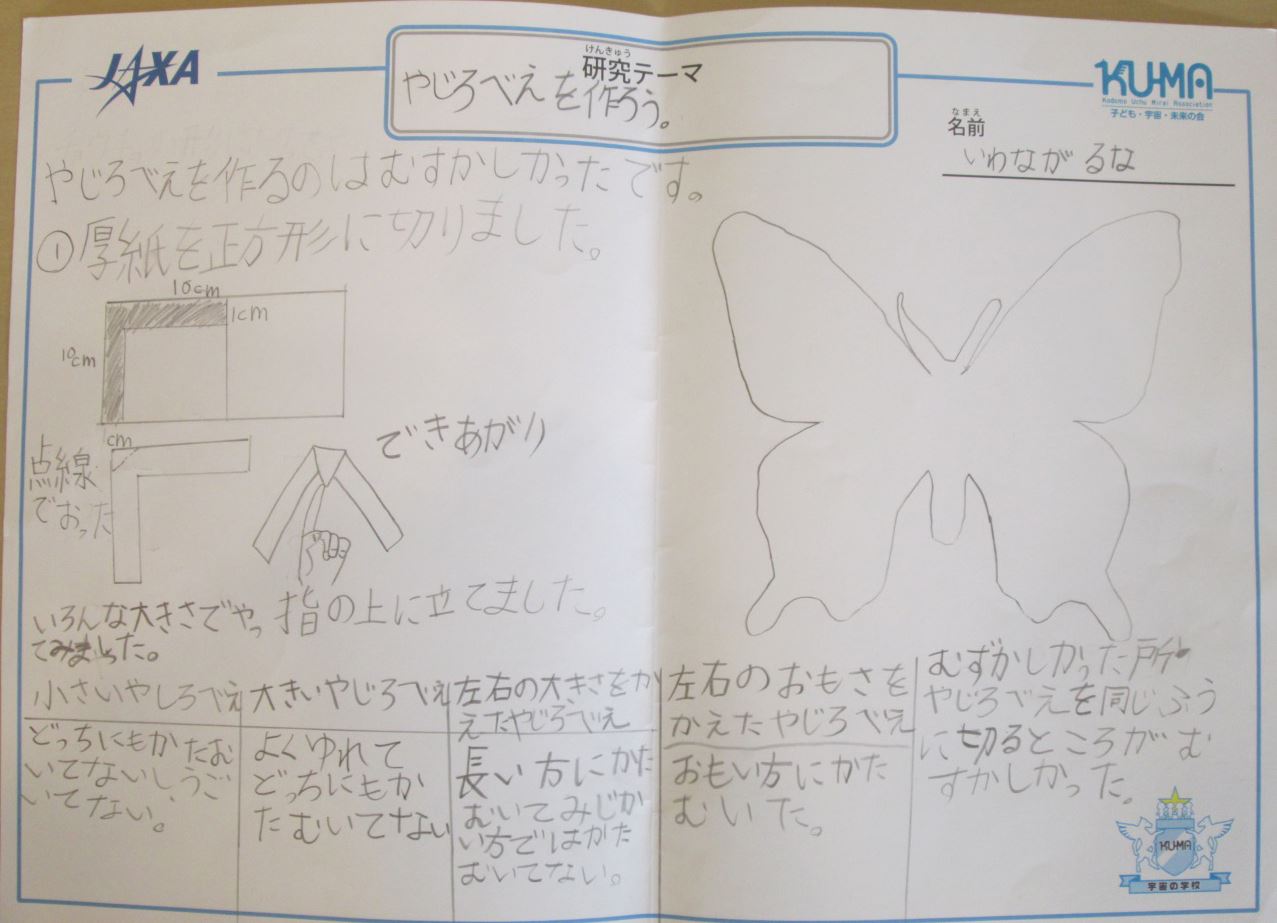 JAXA
けんきゅう
研究テーマ
やじろべえを作ろう。
KU-MA
Kodomo Uchu Mirai Association
子ども・宇宙・未来の会
なまえ
名前
いわなが るな
やじろべえを作るのはむすかしかったです。
① 厚紙を正方形に切りました。
10cm
1cm
10cm
1cm
点線
でおった
できあがり
指の上に立てました。
いろんな大きさでやっ
てみました。
小さいやしろべえ
どっちにもかたむ
いてないし、うご
いてない。
大きいやじろべえ
よくゆれて
どっちにもか
たむいてない
左右の大きさをか
えたやじろべえ
長い方にかた
むいてみじか
い方ではかた
むいてない。
左右のおもさを
かえたやじろべえ
おもい方にかた
むいた。
むずかしかった所
やじろべえを同じふう
に切るところがむ
すかしかった。
KU-MA
宇宙の学校